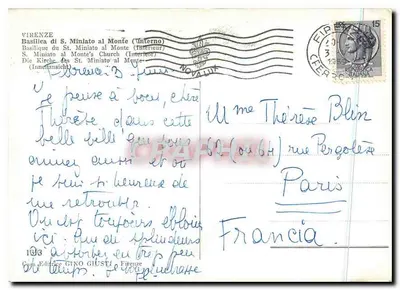 FIRENZE
Basilica di S. Miniato al Monte (Interno)
Basilique du St. Miniato al Monte (Intérieur)
S. Miniato al Monte's Church (Interior)
Die Kirche des St. Miniato al Monte
(Innenansicht)
NOVALUX
FIRENZE
15
Florence 3 juin
Je pense à vous, chère
Thérèse dans cette
belle ville que vous
aimez aussi et où
je suis si heureuse de
me retrouver.
On est toujours ébloui
ici. Que de splendeurs
à absorber en trop peu
de temps.
Mme Thérèse Blin
rue Pergolèse
Paris
Francia.
GINO GIUSTI - Firenze